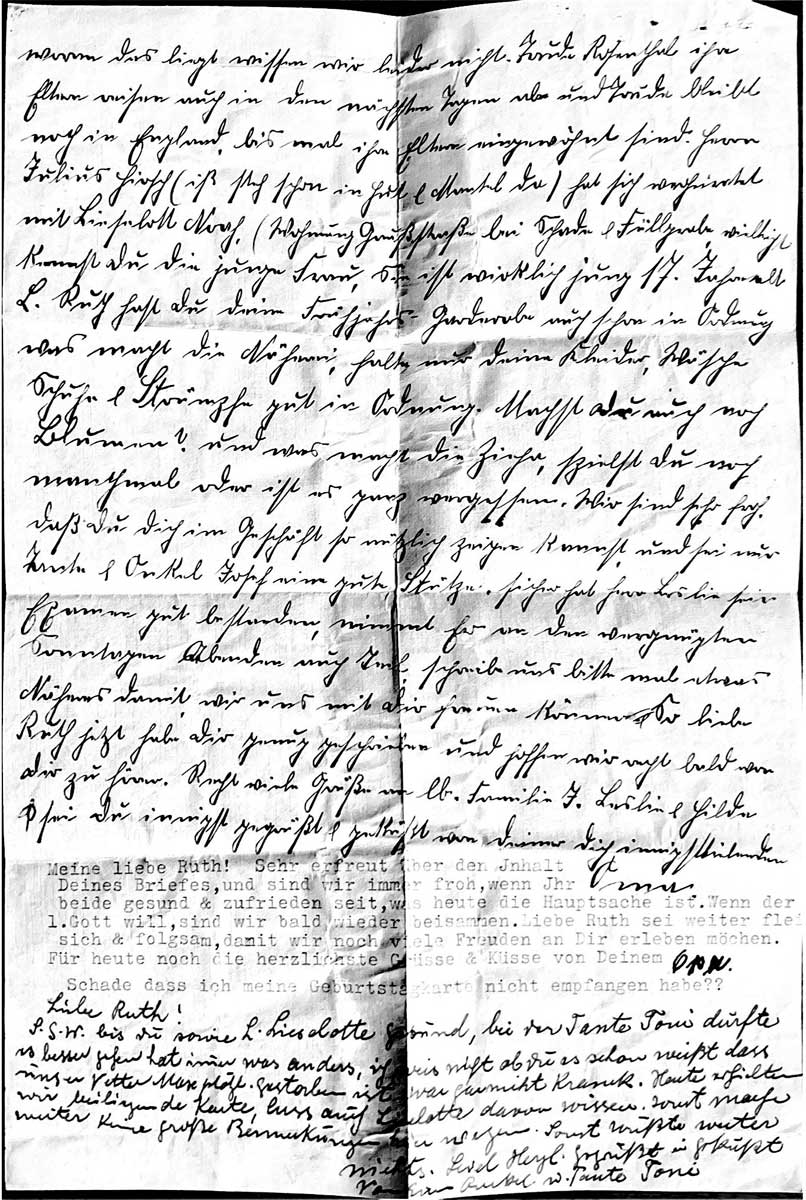 woran das liegt wissen wir leider nicht. Trude Rosenthal ihre
Eltern reisen auch in den nächsten Tagen ab und Trude bleibt
noch in England, bis mal ihre Eltern eingewöhnt sind. Herrn
Julius Hirsch (iß steh schon in Hut & Mantel da) hat sich verheiratet
mit Lieselott Noah, (Wohnung Gaußstraße bei Schade & Füllgrabe, vielleicht
kennst du die junge Frau, Sie ist wirklich jung 17. Jahre alt
L. Ruth hast du deine Frühjahrs- Garderobe auch schon in Ordnung
was macht die Näherei, halte nur deine Kleider, Wäsche
Schuhe & Strümpfe gut in Ordnung. Machst du auch noch
Blumen? und was macht die Ziehr, spielst du noch
manchmal oder ist es ganz vergessen. Wir sind sehr froh,
daß du dich im Geschäft so nützlich zeigen kannst, und sei nur
Tante & Onkel Josef eine gute Stütze. sicher hat Herr Leslie sein
Examen gut bestanden, nimmt Er an den vergnügten
Sonntagen Abenden auch Teil, schreibe uns bitte mal etwas
Näheres damit wir uns mit dir freuen können. So liebe
Ruth jetzt habe dir genug geschrieben und hoffen wir recht bald von
dir zu hören. Recht viele Grüße an lb. Familie J. Leslie & Hilde
& sei du innigst gegrüßt & geküßt von deiner dich innigstliebenden
Oma
Meine liebe Ruth! Sehr erfreut über den Jnhalt
Deines Briefes,und sind wir immer froh,wenn Jhr
beide gesund & zufrieden seit,was heute die Hauptsache ist.Wenn der
l.Gott will,sind wir bald wieder beisammen.Liebe Ruth sei weiter flei
sich & folgsam,damit wir noch viele Freuden an Dir erleben möchen.
Für heute noch die herzlichste Grüsse & Küsse von Deinem Opa.
Schade dass ich meine Geburtstagkarte nicht empfangen habe??
Liebe Ruth!
S.G.W. bis du sowie L. Lieselotte gesund, bei der Tante Toni dürfte
es besser gehen hat immer was anders, ich weis nicht ob du es schon weißt dass
unser Vetter Max plötzl. gestorben ist war gar nicht krank. Heute erhielten
wir beiliegende Karte, lass auch Lieselotte davon wissen. sonst mache
weiter keine große Bemerkungen wegen. Sonst wüßte weiter
nichts. Seid Herzl. gegrüßt u geküßt
von Onkel u. Tante Toni